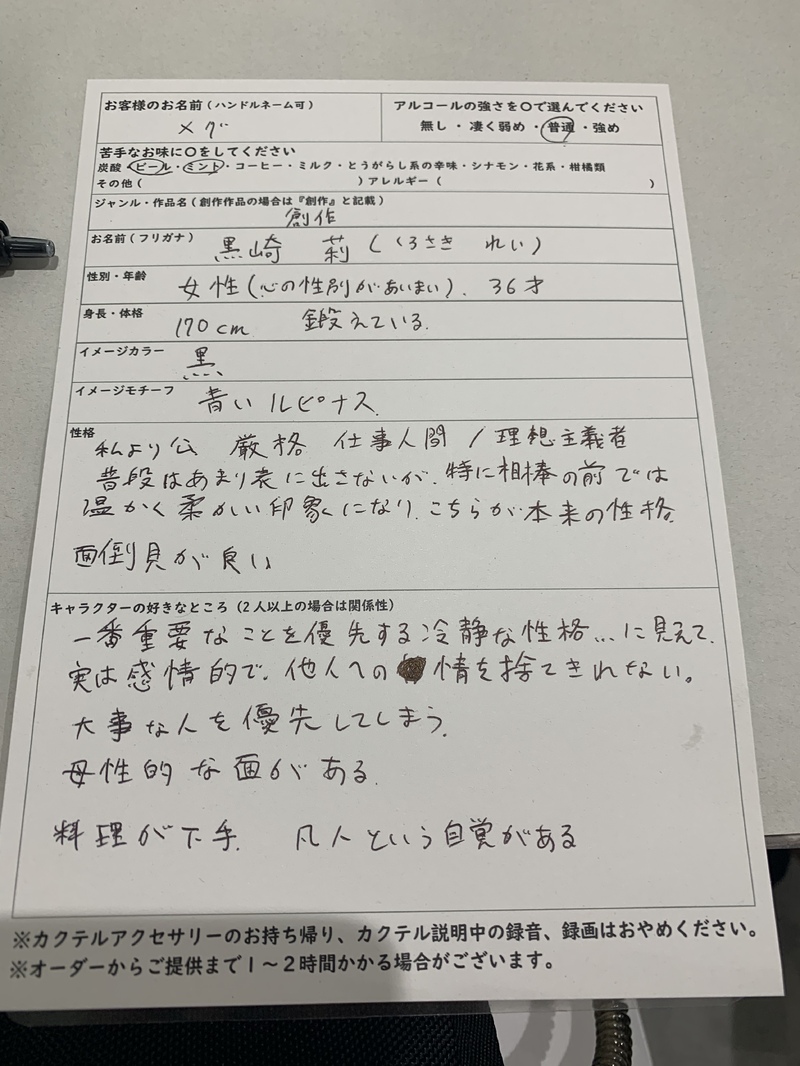 お客様のお名前(ハンドルネーム可)
メグ
アルコールの強さを〇で選んでください
無し・凄く弱め・普通・強め
苦手なお味に〇をしてください
炭酸・ビール・ミント・コーヒー・ミルク・とうがらし系の辛味・シナモン・花系・柑橘類
その他( )アレルギー( )
ジャンル・作品名(創作作品の場合は『創作』と記載)
創作
お名前(フリガナ)
黒崎 莉(くろさき れい)
性別・年齢
女性(心の性別があいまい). 36才
身長・体格
170cm 鍛えている.
イメージカラー
黒
イメージモチーフ
青いルピナス.
性格
私より公 厳格 仕事人間/理想主義者
普段はあまり表に出さないが、特に相棒の前では
温かく柔かい印象になり、こちらが本来の性格.
面倒見が良い
キャラクターの好きなところ(2人以上の場合は関係性)
一番重要なことを優先する冷静な性格...に見えて、
実は感情的で、他人への情を捨てきれない。
大事な人を優先してしまう.
母性的な面がある.
料理が下手. 凡人という自覚がある
※カクテルアクセサリーのお持ち帰り、カクテル説明中の録音、録画はおやめください。
※オーダーからご提供まで1~2時間かかる場合がございます。